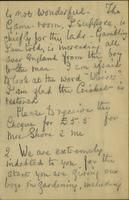 is not wonderful. The
Game-room, I suppose, is
chiefly for the lads - Gambling
I am told, is increasing all
over England from the boy
to the man. I am afraid
to look at the word
I am glad the Cricket is
restored
Please Dis
Cheque for £5.5 for
Mrs Shore & me
2 We are extremely
indebted to you for the
start you are giving our
boys in gardening, including